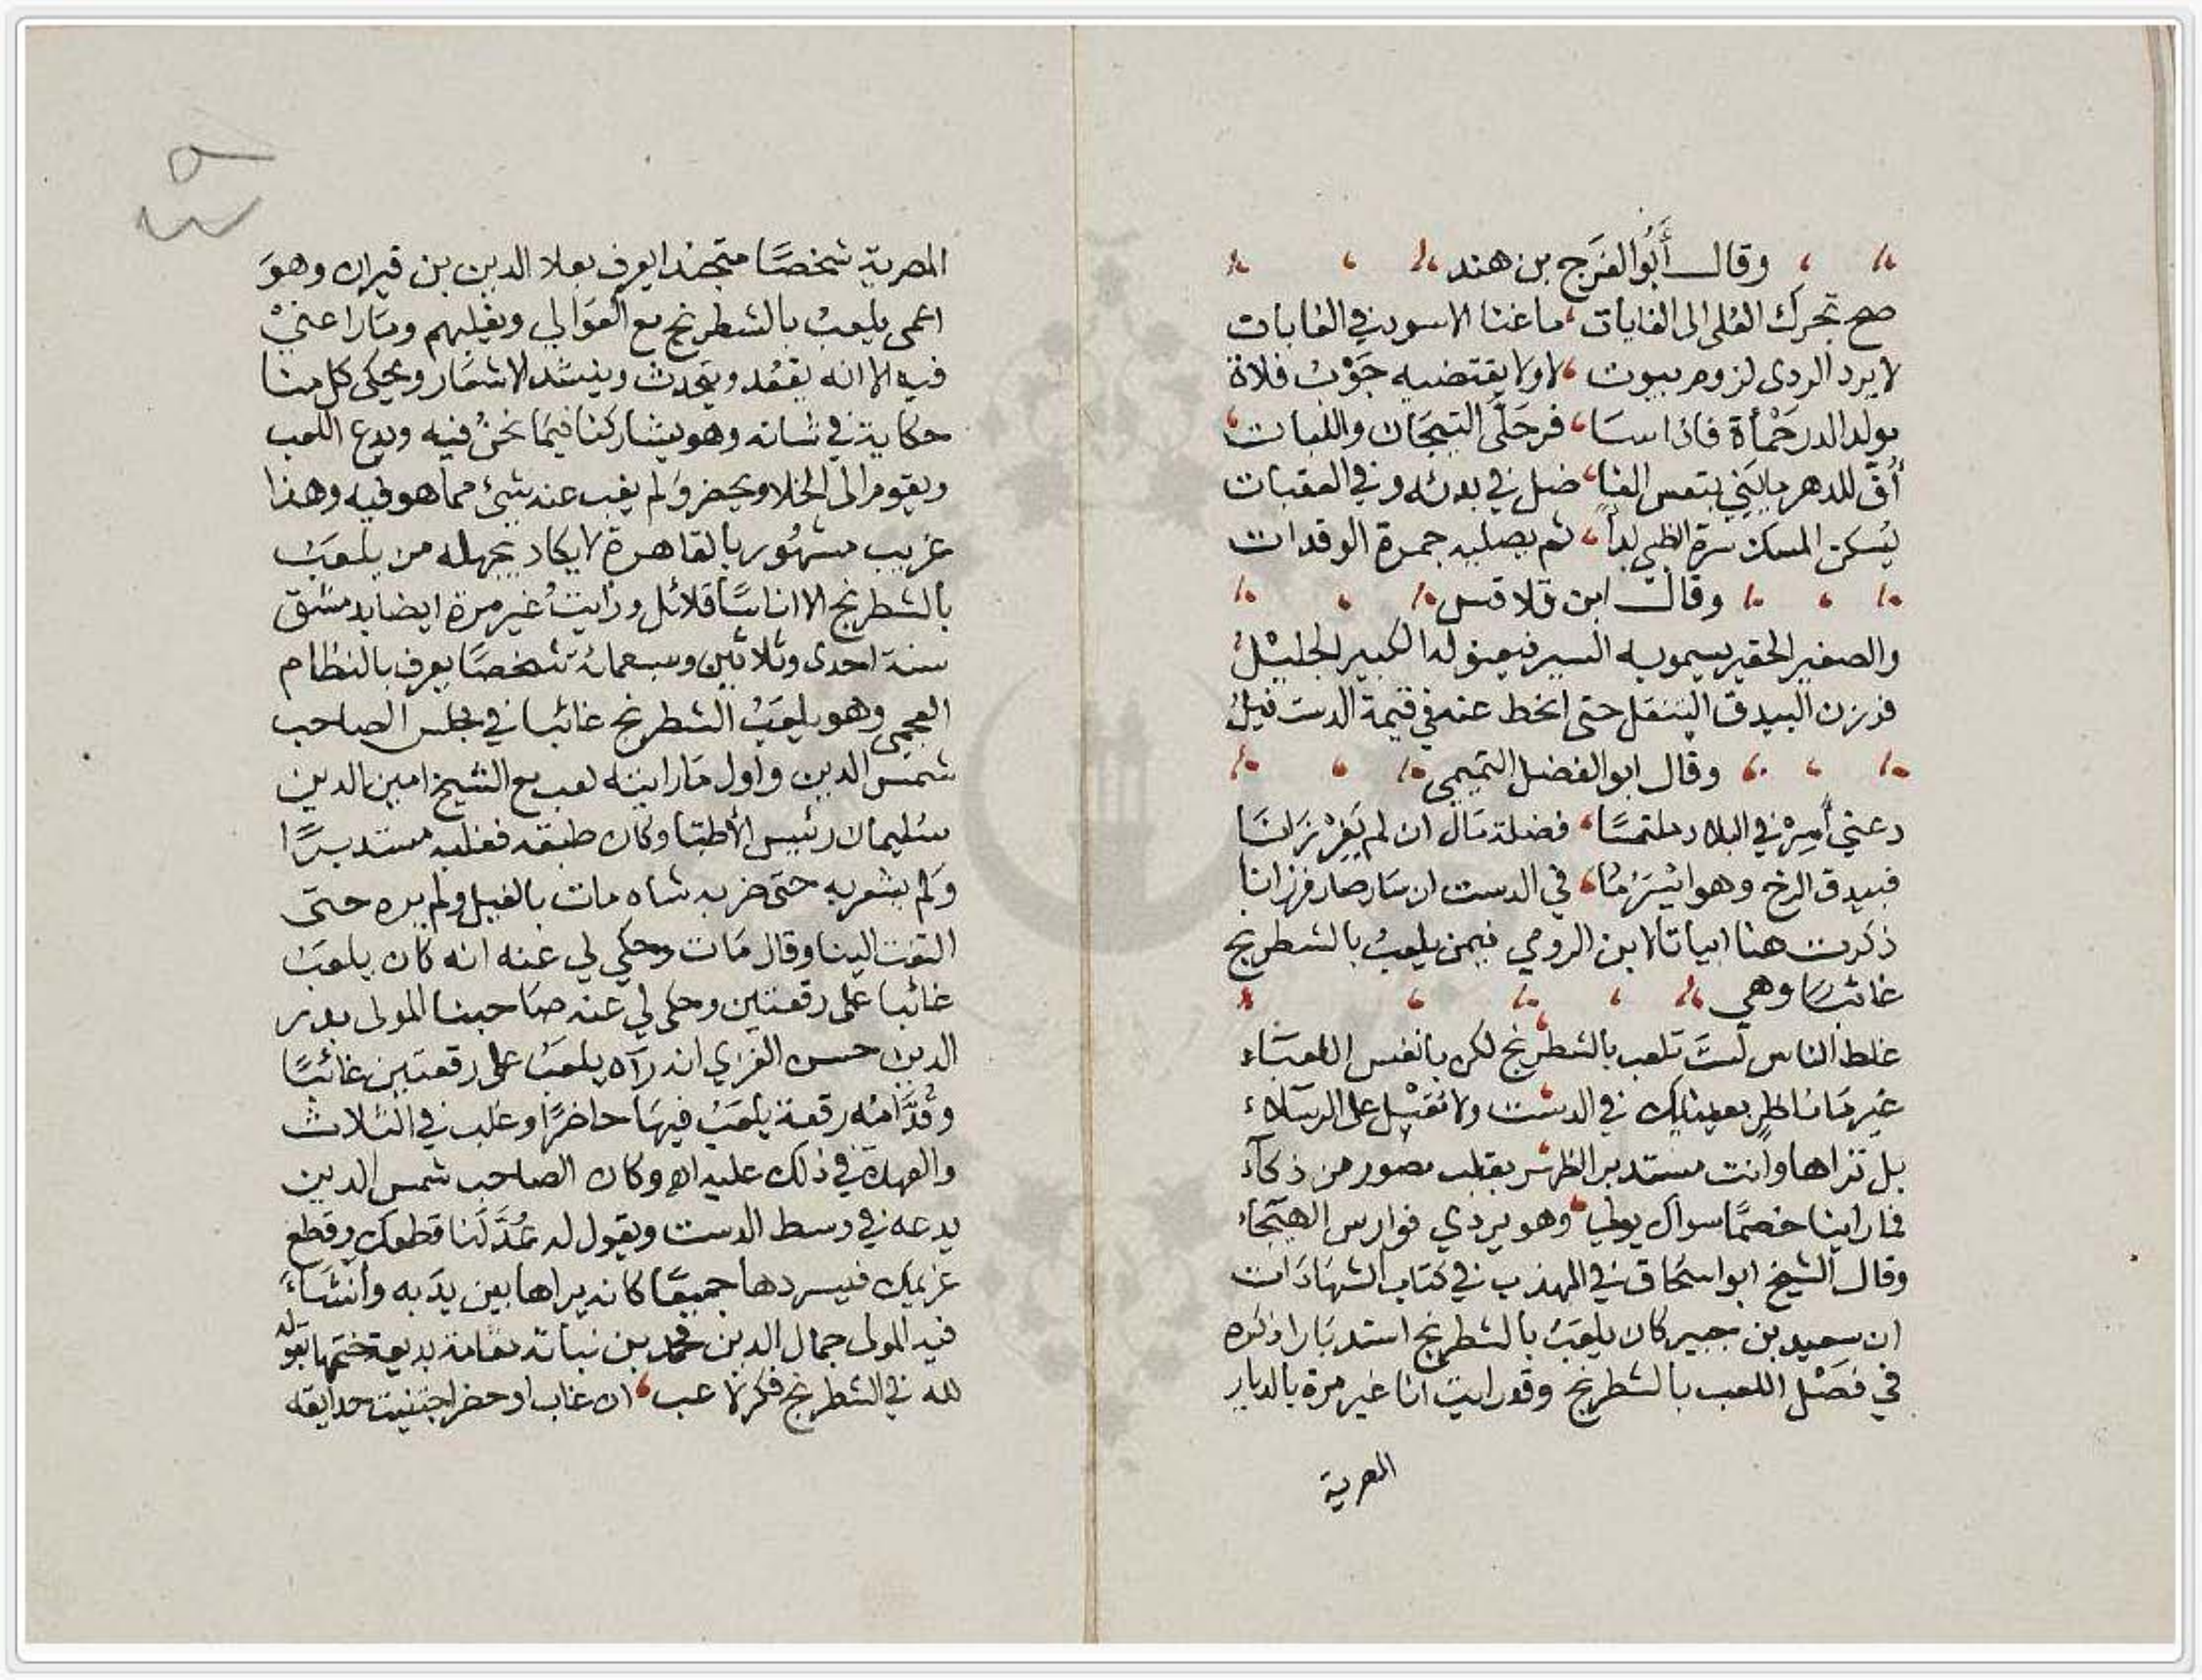 وقالـــ أَبُو الفَرَج بن هند
صح تحرك العُلى الى الغايات ما عنا الاسود في الغابات
لا يرد الردى لزوم بيوت لا ولا يقتضيه جَوْبُ فلاة
يولد الدر حَمْأة فاذا سا فر حَلَّى التيجَان واللبات
أُفّ للدهر ما يَني بتعس الفنا ضل في بدئه وفي العقبات
يُسكن المسك سرة الظبي بدأً ثم يصليه جمرة الوقدات
وقالــ ابن قلاقس
والصغير الحقير يسمو به السير فيعنو له الكبير الجليلُ
فرزن البيدق التنقل حتى انحط عنه في قيمة الدست فيلُ
وقال ابو الفضل التميمي
دعني أَسِرْ في البلاد ملتمسًا فضلة مَال ان لم يَفِرْ زَانَا
فبيدق الرخ وهو ايْسَرُ مَا في الدست ان سَار صار فرزانا
ذكرت هنا ابياتا لابن الرومي فيمن يلعبُ بالشطرنج
غائبًا وهي
غلط الناس لَستَ تلعب بالشطرنج لكن بانفس اللعبَاء
غير مَا ناظرٍ بعينيك في الدست ولا مُقبْل على الرسَلاء
بل تراها وانت مستدبر الظهر بقلب مصور من ذكآء
فما راينا خصمًا سواك يولي وهو يردي فوارس الهيَجآء
وقال الشيخ ابو اسحَاق في المهذب في كتاب الشهَادَات
ان سعيد بن جبير كان يلعَبُ بالشطرنج استدبَارا ذكره
في فصْل اللعب بالشطرنج وقد رايت انا غير مرة بالديار
المصرية
المصرية شخصًا متجندا يعرف بعلا الدين بن قيران وهوَ
اعمى يلعبُ بالشطرنج مع العَوَالي ويغلبهم ومَا راعنيْ
فيه الا انه يقعُد ويتحدث وينشد لاشعَار ويحكي كل منا
حكاية في شانه وهو يشاركنا فيمَا نحنُ فيه ويدع اللعب
ويقوم الى الخلا ويحضر وَلم يغب عنه شئ مما هو فيه وهذا
غريب مشهُور بالقاهرة لا يكاد يجهله من يلعَبُ
بالشطرنج الا اناسًا قلائل ورَايتُ غير مرة ايضا بدمشق
سنة احدى وثلاثين وسبعمائة شخصًا يعرف بالنظام
العجمي وهو يلعَبُ الشطرنج غائبا في مجلس الصاحب
شمسَ الدين واول مَا رايته لعب مع الشيخ امين الدين
سُليمان رئيس الأطبّا وكان طبقه فغلبه مستدبرًا
وَلم يشعر به حتى ضربه شاه مات بالفيل ولم يره حتى
التفت الينا وقال مَات وحكي لي عنه انه كان يلعَبُ
غائبا على رقعتين وحكى لي عنه صَاحبنا المولى بدر
الدين حسن الغزي انه رآه يلعَبُ على رقعتين غائبًا
وقُدَّامُه رقعة يلعَبُ فيهَا حاضرًا وغلب في الثلاث
والعهدة في ذلك عليه اهـ وكان الصاحب شمس الدين
يدعه في وسط الدست ويقول له عُدَّ لَنا قطعك وقطع
غريمك فيسردها جميعًا كانه يراها بين يدَيه وانشَاءَ
فيه المولى جمال الدين محمد بن نباتة مقامة بديعة ختمها بقوله
لله في الشطرنج فكرة لاعب ان غاب او حضر اجتنيت حدايقه